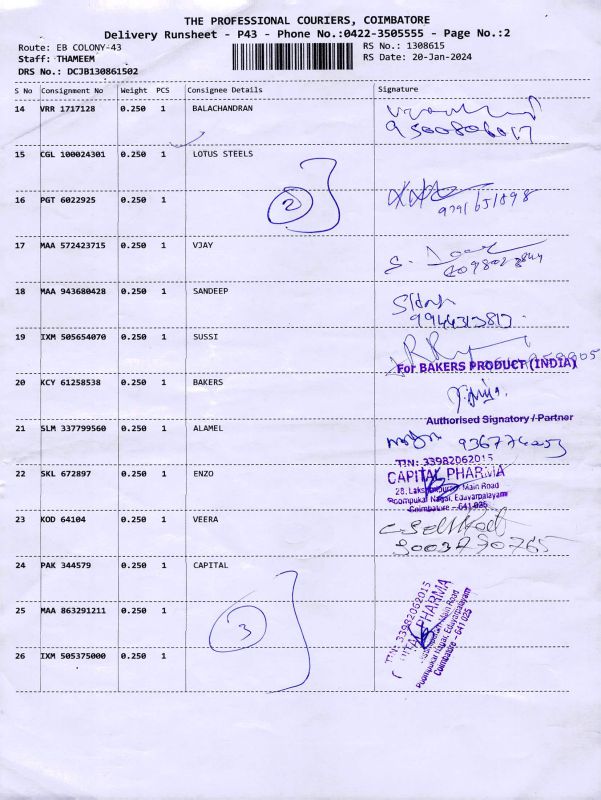 THE PROFESSIONAL COURIERS, COIMBATORE
Delivery Runsheet - P43 - Phone No.:0422-3505555 - Page No.:2
Route: EB COLONY-43
RS No.: 1308615
Staff: THAMEEM
RS Date: 20-Jan-2024
DRS No.: DCJB130861502
S No Consignment No Weight PCS Consignee Details Signature
14 VRR 1717128 0.250 1 BALACHANDRAN
15 CGL 100024301 0.250 1 LOTUS STEELS
2
16 PGT 6022925 0.250 1
17 MAA 572423715 0.250 1 VJAY
18 MAA 943680428 0.250 1 SANDEEP
19 IXM 505654070 0.250 1 SUSSI
For BAKERS PRODUCT (INDIA)
20 KCY 61258538 0.250 1 BAKERS
Authorised Signatory / Partner
21 SLM 337799560 0.250 1 ALAMEL
TIN: 33982062015
22 SKL 672897 0.250 1 ENZO CAPITAL PHARMA
Main Road
Poompukar Nagar, Edayarpalayam
Coimbatore - 641 025
23 KOD 64104 0.250 1 VEERA
24 PAK 344579 0.250 1 CAPITAL
25 MAA 863291211 0.250 1
3
26 IXM 505375000 0.250 1
TIN: 33982062015
PHARMA
Main Road
Poompukar Nagar, Edayarpalayam
Coimbatore - 641 025